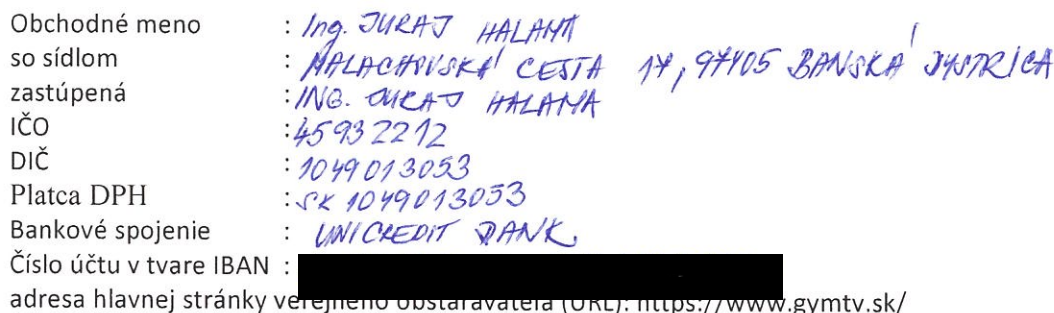 Obchodné meno : Ing. JURAJ HALAMA
so sídlom : MALACHOVSKÁ CESTA 17, 97405 BANSKÁ BYSTRICA
zastúpená : ING. JURAJ HALAMA
IČO : 45932212
DIČ : 1049013053
Platca DPH : SK 1049013053
Bankové spojenie : UNICREDIT BANK
Číslo účtu v tvare IBAN :
adresa hlavnej stránky verejného obstarávateľa (URL): https://www.gymtv.sk/